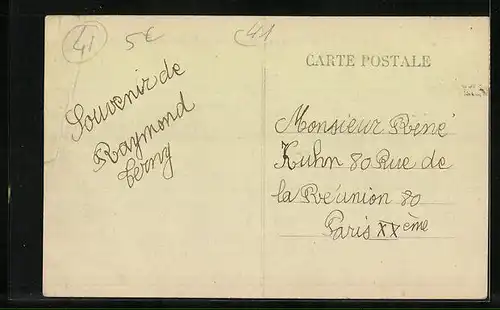 41
5€
41
CARTE POSTALE
Souvenir de
Raymond
Monsieur René
Kuhn 80 Rue de
la Réunion 80
Paris XXème